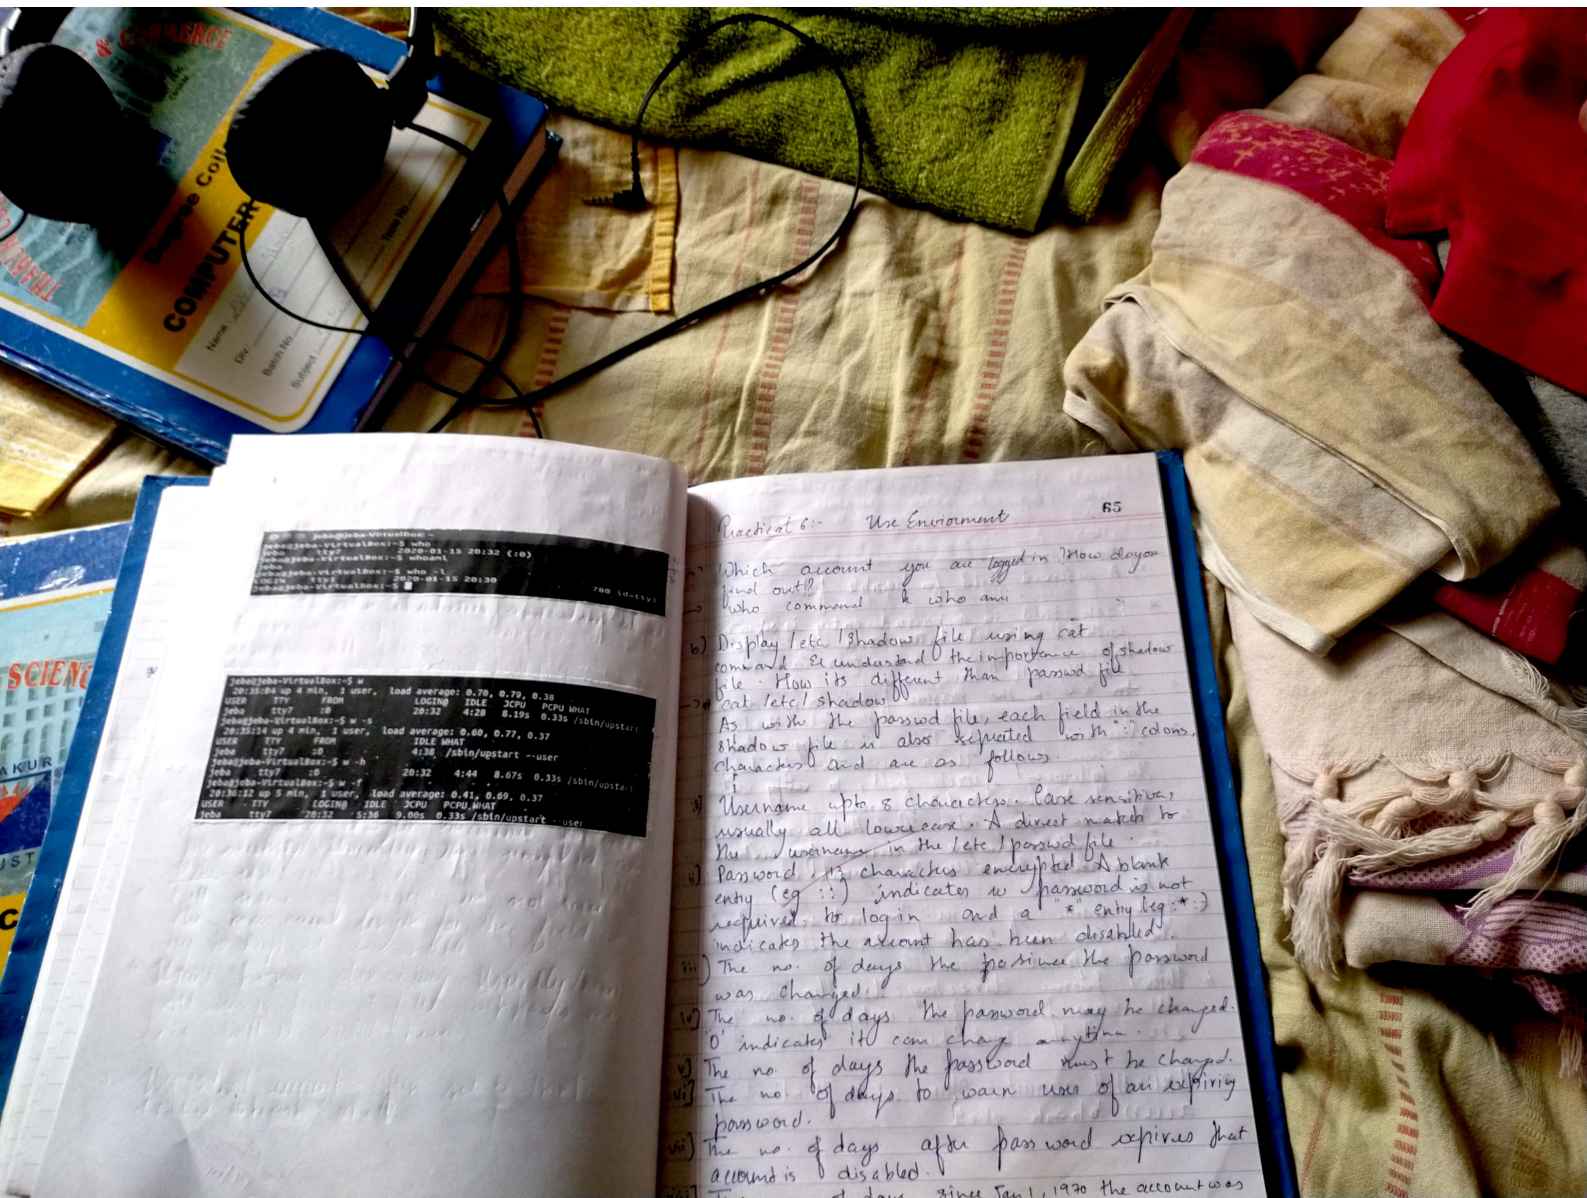 & COMMERCE
Degree Coll
COMPUTER
Name
Div.
Batch No
Subject
Table No.
SCIENC
AKUR
UST
C
jeba@jeba-VirtualBox: ~
jeba@jeba-VirtualBox:~$ who
jeba tty7 2020-01-15 20:32 (:0)
jeba@jeba-VirtualBox:~$ whoami
jeba
jeba@jeba-VirtualBox:~$ who -l
LOGIN tty1 2020-01-15 20:30 780 id=tty1
jeba@jeba-VirtualBox:~$
jeba@jeba-VirtualBox:~$ w
20:35:04 up 4 min, 1 user, load average: 0.70, 0.79, 0.38
USER TTY FROM LOGIN@ IDLE JCPU PCPU WHAT
jeba tty7 :0 20:32 4:28 8.19s 0.33s /sbin/upstart
jeba@jeba-VirtualBox:~$ w -s
20:35:14 up 4 min, 1 user, load average: 0.60, 0.77, 0.37
USER TTY FROM IDLE WHAT
jeba tty7 :0 4:38 /sbin/upstart --user
jeba@jeba-VirtualBox:~$ w -h
jeba tty7 :0 20:32 4:44 8.67s 0.33s /sbin/upstart
jeba@jeba-VirtualBox:~$ w -f
20:36:12 up 5 min, 1 user, load average: 0.41, 0.69, 0.37
USER TTY LOGIN@ IDLE JCPU PCPU WHAT
jeba tty7 20:32 5:36 9.00s 0.33s /sbin/upstart --user
65
Practical 6:- Use Enviorment
Which account you are logged in? How do you
find out?
→ who command & who ami
b) Display /etc/shadow file using cat
command & understand the importance of shadow
file. How its different than passwd file
→ cat /etc/shadow
As with the passwd file, each field in the
shadow file is also seperated with ":" colons,
characters and are as follows.
i) Username upto 8 characters. Case sensitive,
usually all lowercase. A direct match to
the username in the /etc/passwd file.
ii) Password, 13 characters encrypted. A blank
entry (eg ::) indicates a password is not
required to log in and a "*" entry (eg :*:)
indicates the account has been disabled.
iii) The no. of days the po since the password
was changed.
iv) The no. of days the password may be changed.
'0' indicates it can change anytime.
v) The no. of days the password must be changed.
vi) The no. of days to warn user of an expiriy
password.
vii) The no. of days after password expires that
account is disabled.
of days since Jan 1, 1970 the account was